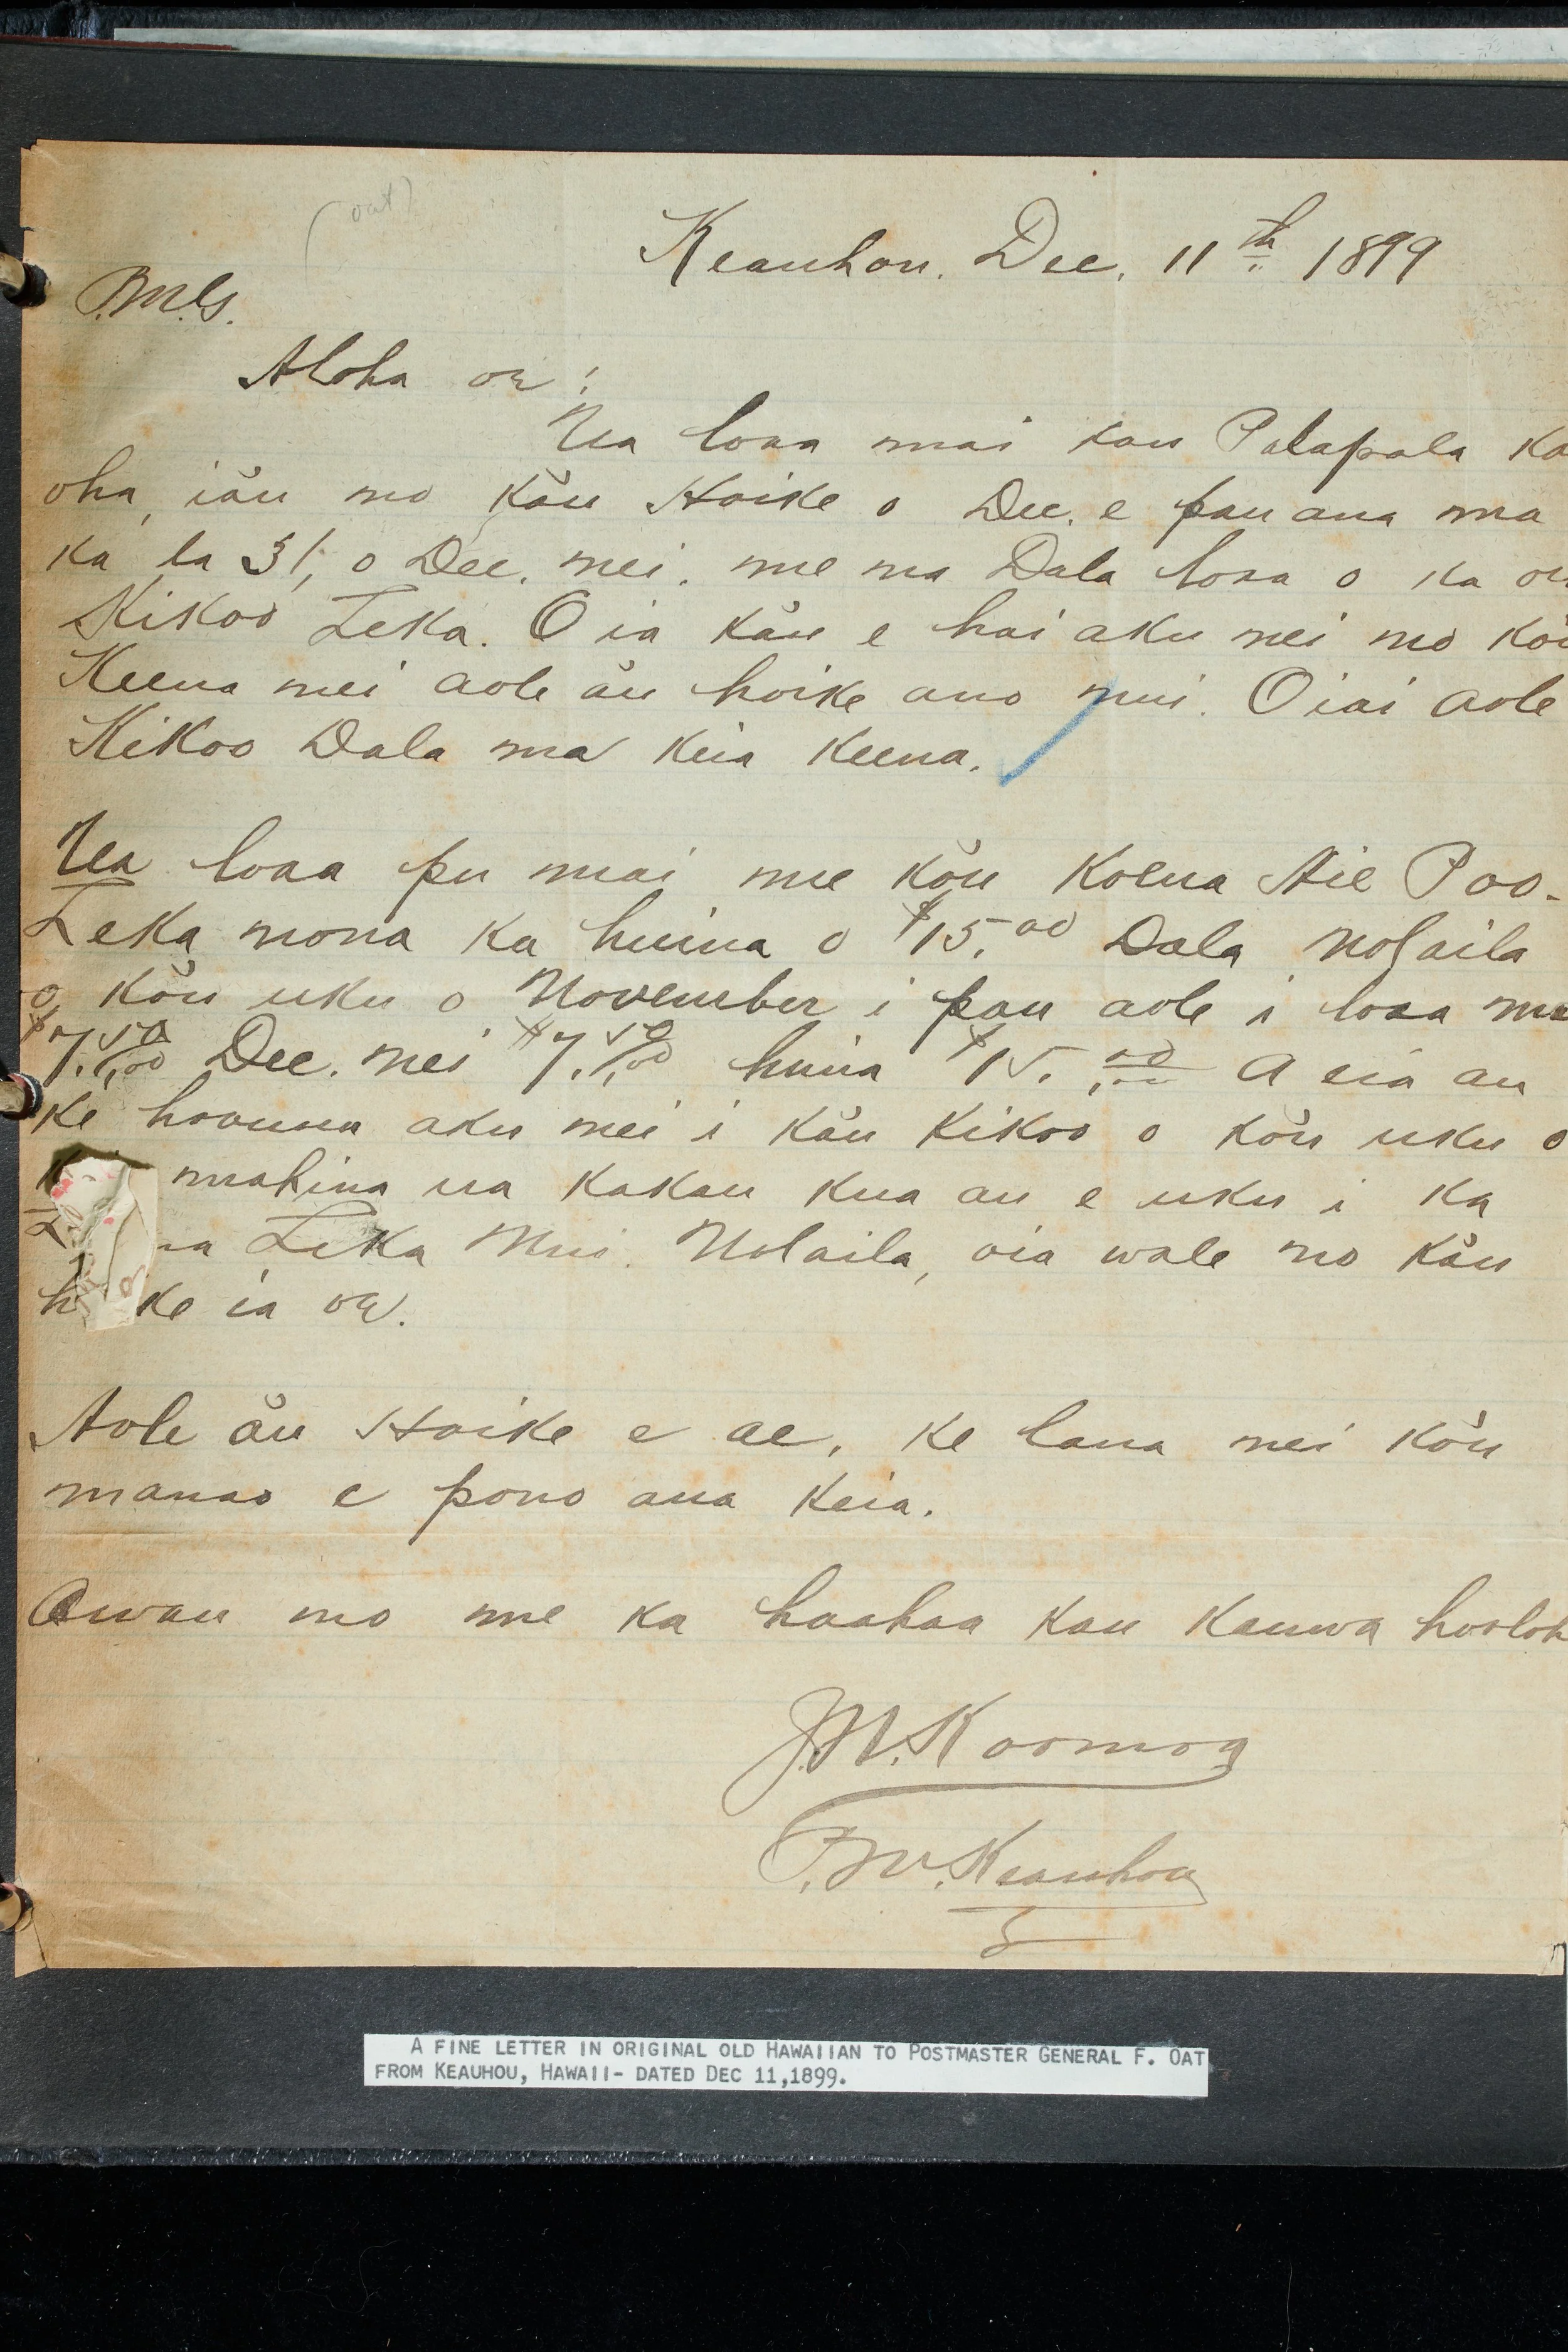 (oat)
Keauhou. Dec. 11th 1899
P.M.G.
Aloha oe;
Ua loaa mai kau Palapala ka
oha, iău no kău Hoike o Dec. e pau ana ma
ka la 31, o Dec. nei. me na Dala loaa o ka
Kikoo Leka. O ia kău e hai aku nei no kŏu
Keena nei aole ău hoike ano nui. Oiai aole
Kikoo Dala ma keia keena.
Ua loaa pu mai me kŏu Koena Aie Poo-
Leka nona ka huina o $15.00 Dala Nolaila
o kŏu uku o November i pau aole i loaa ma
$7.50 Dec. nei $7.50 huina $15.00 A eia au
ke hoouna aku nei i kău kikoo o kŏu uku o
mahina ua kakau kua au e uku i ka
na Leka Nui. Nolaila, oia wale no kău
h ke ia oe.
Aole ău Hoike e ae, ke lana nei kŏu
manao e pono ana keia.
Owau no me ka haahaa kau kauwa hooloh
J.W. Koomoa
P.M. Keauhou
A FINE LETTER IN ORIGINAL OLD HAWAIIAN TO POSTMASTER GENERAL F. OAT
FROM KEAUHOU, HAWAII- DATED DEC 11,1899.